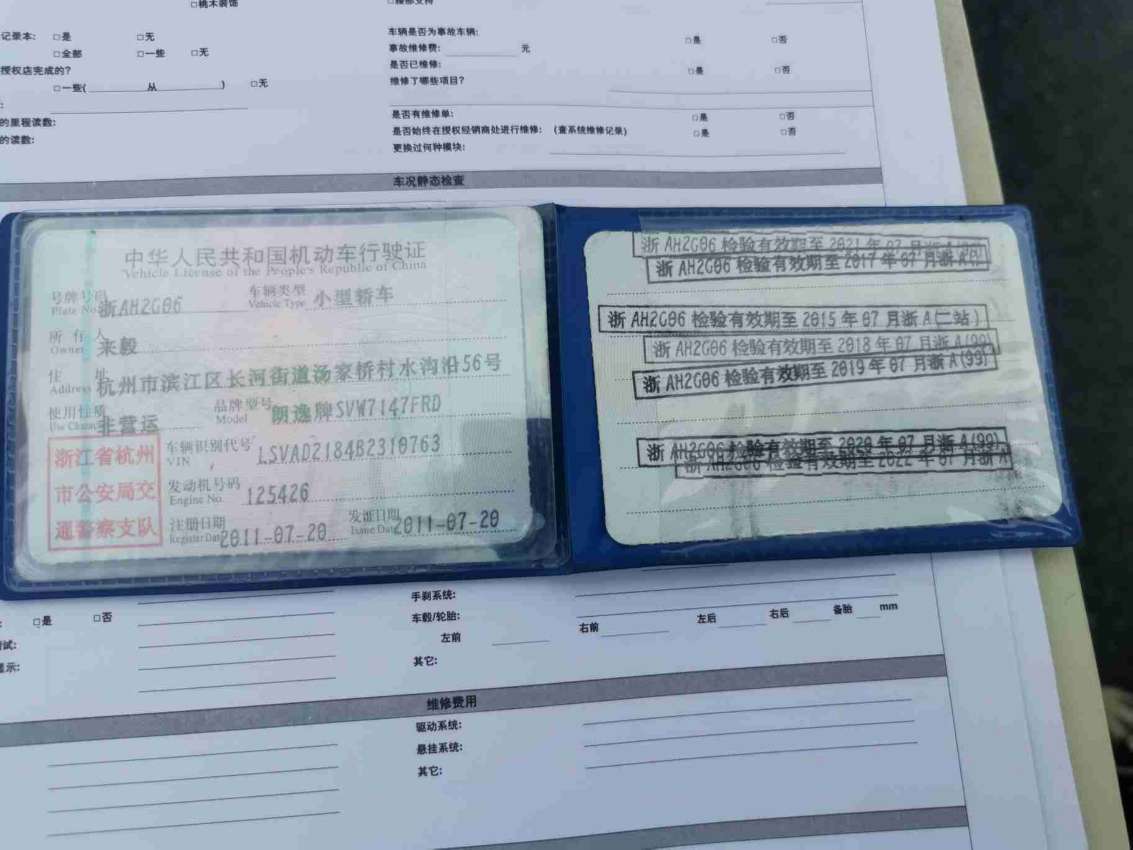 □桃木装饰
□腰部支持
记录本: □是 □无
□全部 □一些 □无
授权店完成的?
□一些( 从 ) □无
的里程读数:
的读数:
车辆是否为事故车辆: □是 □否
事故维修费: 元
是否已维修: □是 □否
维修了哪些项目?
是否有维修单: □是 □否
是否始终在授权经销商处进行维修: (查系统维修记录) □是 □否
更换过何种模块:
车况静态检查
中华人民共和国机动车行驶证
Vehicle License of the People's Republic of China
号牌号码 Plate No. 浙AH2G06 车辆类型 Vehicle Type 小型轿车
所有人 Owner 来毅
住址 Address 杭州市滨江区长河街道汤家桥村水沟沿56号
使用性质 Use Character 非营运 品牌型号 Model 朗逸牌SVW7147FRD
浙江省杭州
市公安局交
通警察支队
车辆识别代号 VIN LSVAD2184B2310763
发动机号码 Engine No. 125426
注册日期 Register Date 2011-07-20 发证日期 Issue Date 2011-07-20
浙 AH2G06 检验有效期至 2021 年 07 月浙 A(96)
浙 AH2G06 检验有效期至 2017 年 07 月浙A
浙 AH2G06 检验有效期至 2015 年 07 月浙 A(二站)
浙 AH2G06 检验有效期至 2018 年 07 月浙 A(99)
浙 AH2G06 检验有效期至 2019 年 07 月浙 A(99)
浙 AH2G06 检验有效期至 2020 年 07 月浙 A(99)
浙 AH2G06 检验有效期至 2022 年 07 月浙 A
□是 □否
试:
显示:
手刹系统:
车毂/轮胎:
左前 右前 左后 右后 备胎 mm
其它:
维修费用
驱动系统:
悬挂系统:
其它: